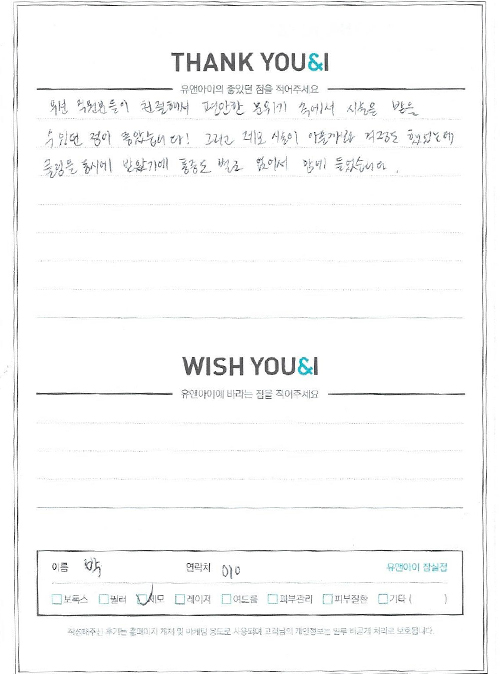 THANK YOU&I
유앤아이의 좋았던 점을 적어주세요
모든 직원분들이 친절해서 편안한 분위기 속에서 시술을 받을
수 있던 점이 좋았습니다! 그리고 제모 시술이 아플까봐 걱정도 했었는데
쿨링을 동시에 받았기에 통증도 별로 없어서 맘에 들었습니다.
WISH YOU&I
유앤아이에 바라는 점을 적어주세요
이름 박 연락처 010 유앤아이 잠실점
보톡스 필러 제모 레이저 여드름 피부관리 피부질환 기타 ( )
작성해주신 후기는 홈페이지 게재 및 마케팅 용도로 사용되며 고객님의 개인정보는 일부 비공개 처리로 보호됩니다.